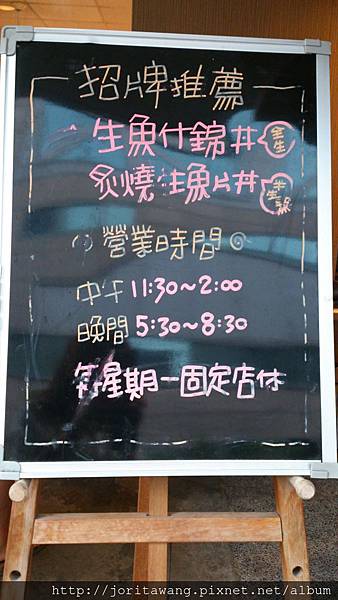 招牌推薦
生魚什錦丼 全生
炙燒生魚片丼 半生熟
營業時間
中午 11:30~2:00
晚間 5:30~8:30
每星期一固定店休
http://joritawang.pixnet.net/album